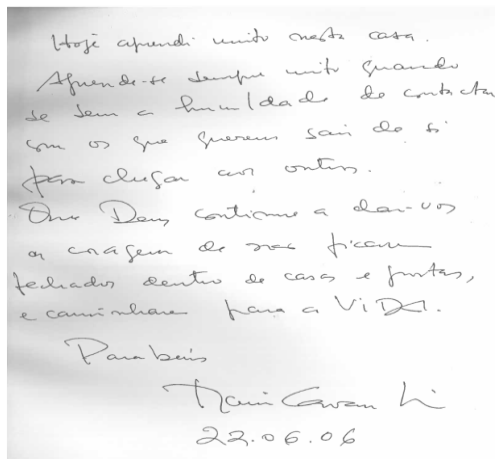 Hoje aprendi muito nesta casa.
Aprende-se sempre muito quando
se tem a humildade de contactar
com os que querem sair de si
para chegar aos outros.
Que Deus continue a dar-vos
a coragem de não ficarem
fechados dentro de casas e portas,
e caminharem para a VIDA.
Parabéns
22.06.06